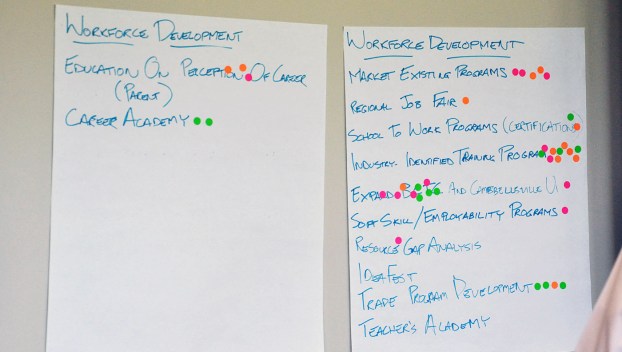 WORKFORCE DEVELOPMENT
EDUCATION ON PERCEPTION OF CAREER
(PARENT)
CAREER ACADEMY
WORKFORCE DEVELOPMENT
MARKET EXISTING PROGRAMS
REGIONAL JOB FAIR
SCHOOL TO WORK PROGRAMS (CERTIFICATION)
INDUSTRY IDENTIFIED TRAINING PROGRAM
EXPAND AND CAMPBELLSVILLE U
SOFT SKILL/EMPLOYABILITY PROGRAMS
RESOURCE GAP ANALYSIS
IDEAFEST
TRADE PROGRAM DEVELOPMENT
TEACHER'S ACADEMY